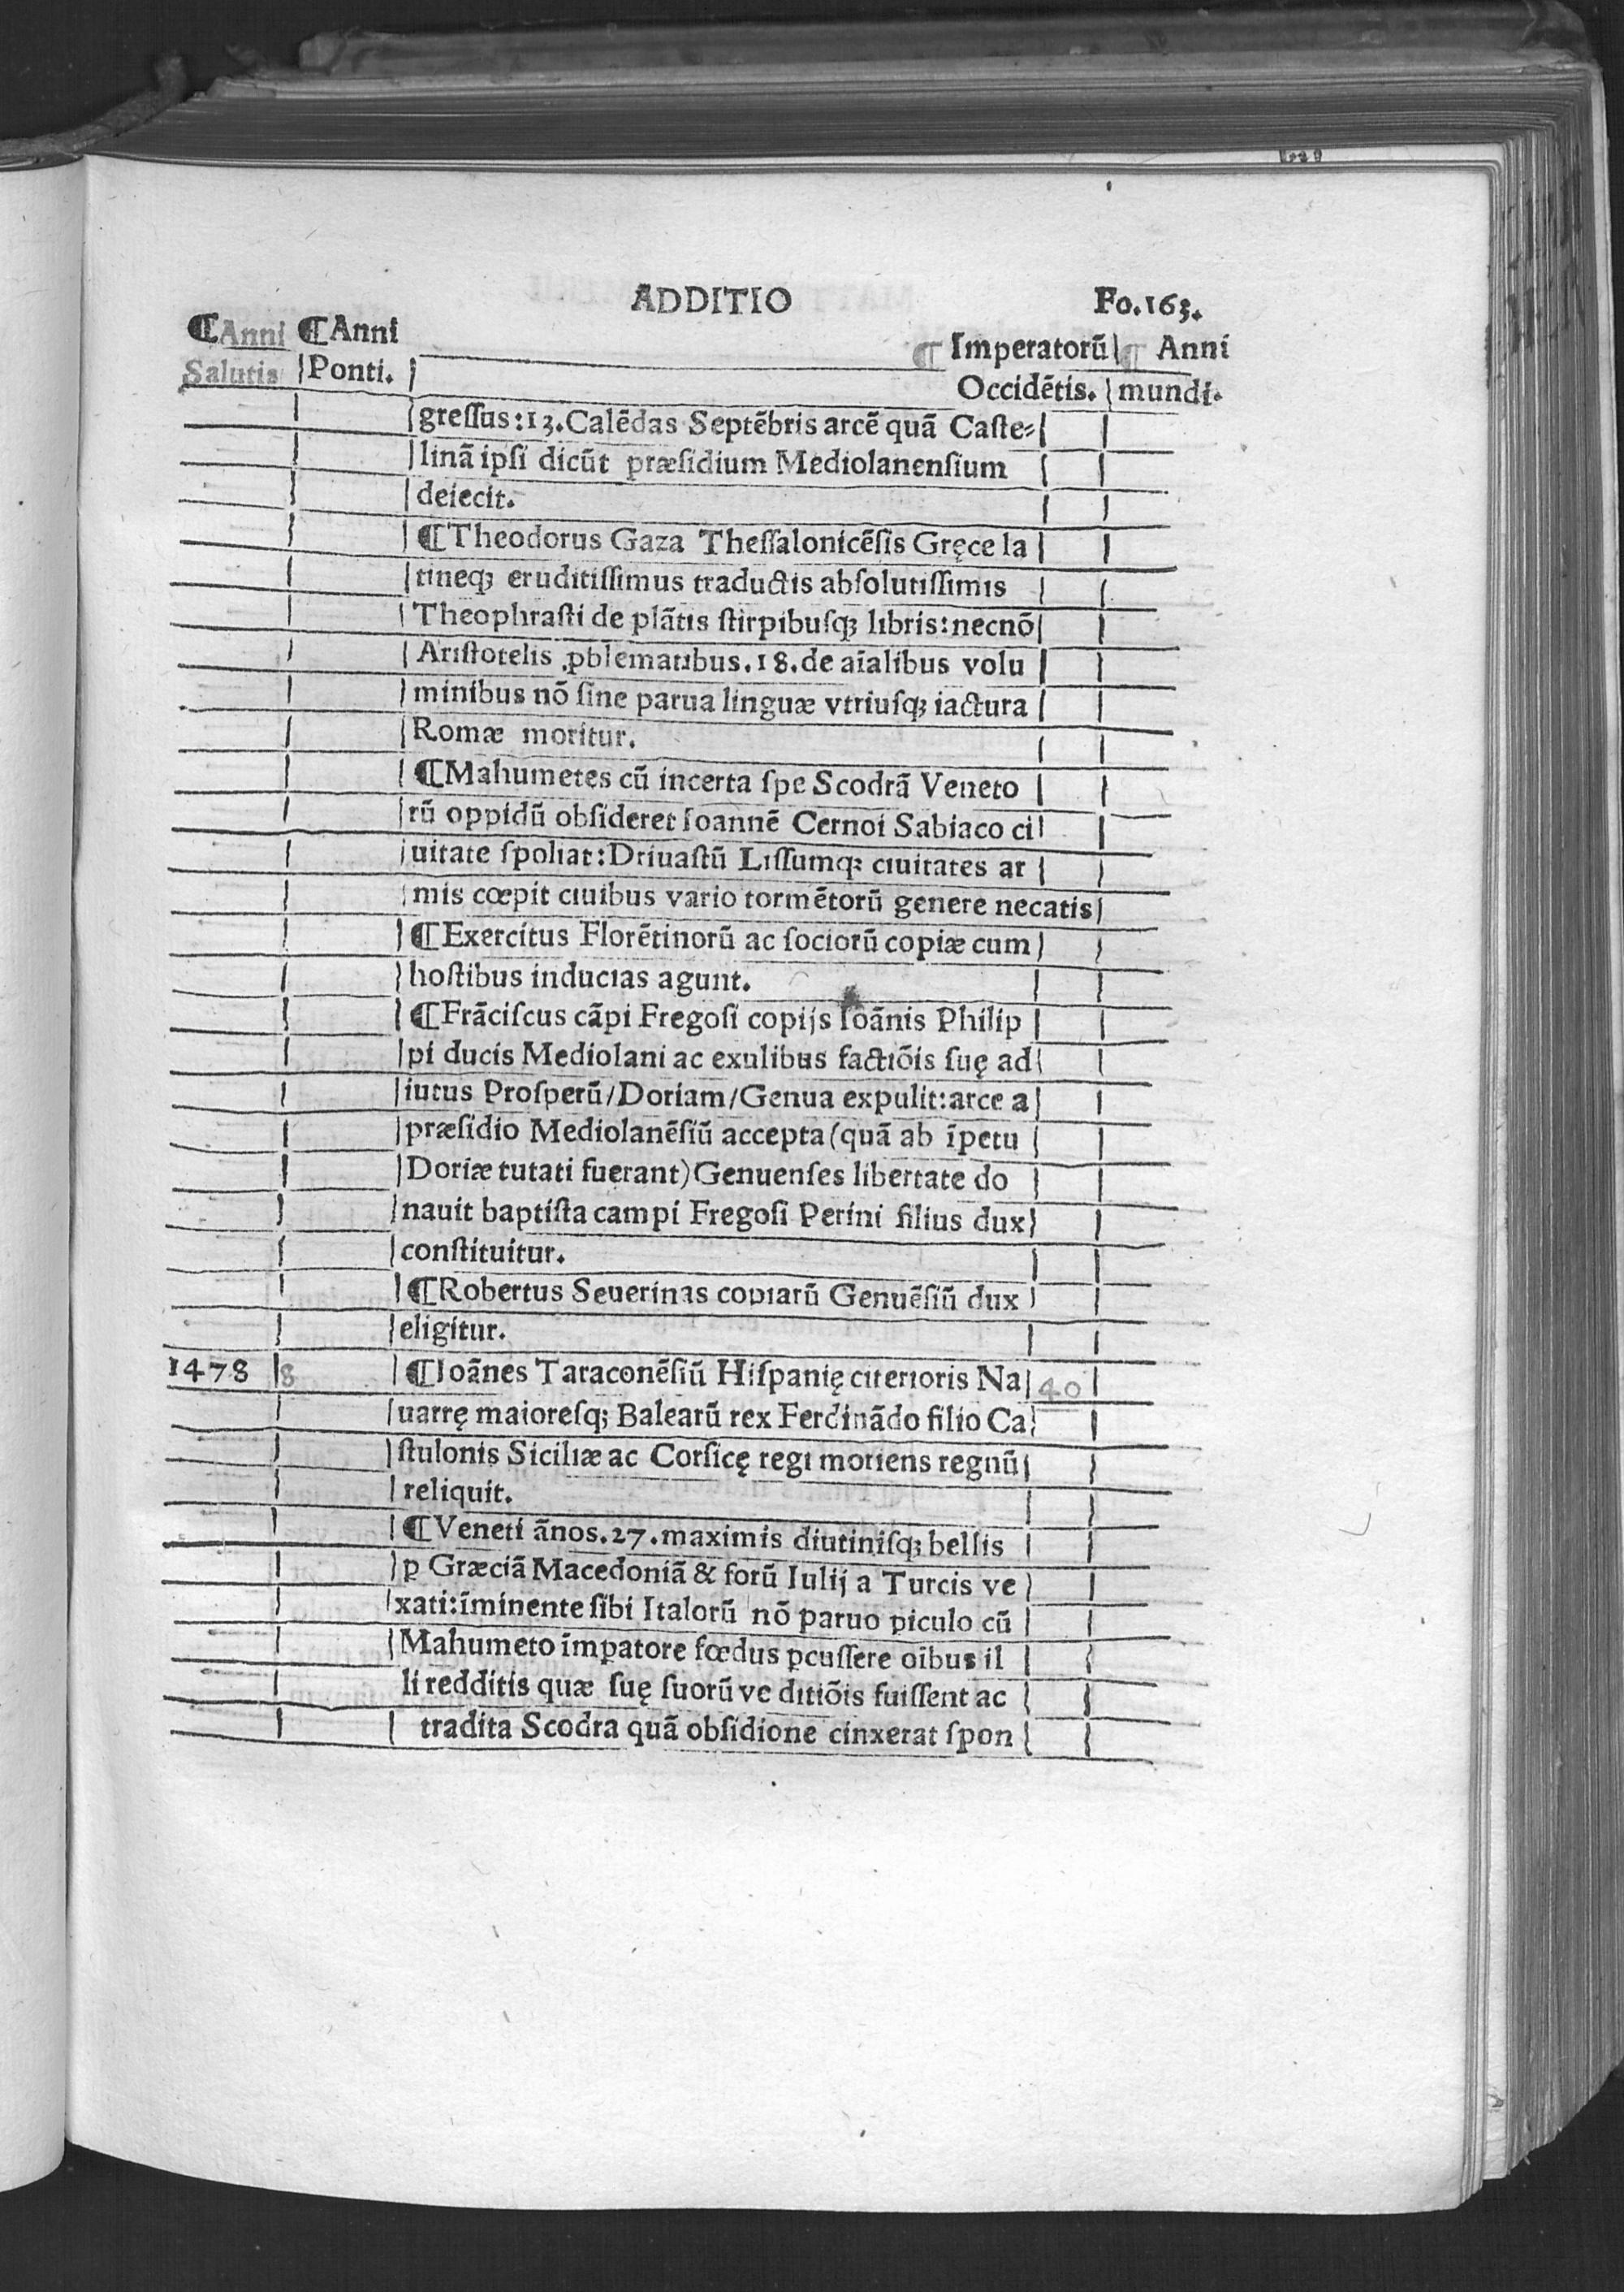 ADDITIO Fo.163.
¶Anni ¶Anni ¶ Imperatorū ¶ Anni
Salutis Ponti. Occidētis. mundi.
greſſus:13.Calēdas Septēbris arcē quā Caſte⸗
linā ipſi dicūt præſidium Mediolanenſium
deiecit.
¶Theodorus Gaza Theſſalonicēſis Gręce la
tineq; eruditiſſimus traductis abſolutiſſimis
Theophraſti de plātis ſtirpibuſq; libris:necnō
Ariſtotelis ꝓblematibus.18.de aīalibus volu
minibus nō ſine parua linguæ vtriuſq; iactura
Romæ moritur.
¶Mahumetes cū incerta ſpe Scodrā Veneto
rū oppidū obſideret Ioannē Cernoi Sabiaco ci
uitate ſpoliat:Driuaſtū Liſſumq; ciuitates ar
mis cœpit ciuibus vario tormētorū genere necatis
¶Exercitus Florētinorū ac ſociorū copiæ cum
hoſtibus inducias agunt.
¶Frāciſcus cāpi Fregoſi copijs Ioānis Philip
pi ducis Mediolani ac exulibus factiōis ſuę ad
iutus Proſperū/Doriam/Genua expulit:arce a
præſidio Mediolanēſiū accepta(quā ab īpetu
Doriæ tutati fuerant)Genuenſes libertate do
nauit baptiſta campi Fregoſi Perini filius dux
conſtituitur.
¶Robertus Seuerinas copiarū Genuēſiū dux
eligitur.
1478 8 ¶Ioānes Taraconēſiū Hiſpanię citerioris Na 40
uarrę maioreſq; Balearū rex Ferdinādo filio Ca
ſtulonis Siciliæ ac Corſicę regi moriens regnū
reliquit.
¶Veneti ānos.27.maximis diutiniſq; bellis
ꝑ Græciā Macedoniā & forū Iulij a Turcis ve
xati:īminente ſibi Italorū nō paruo ꝑiculo cū
Mahumeto imꝑatore fœdus ꝑcuſſere oībus il
li redditis quæ ſuę ſuorū ve ditiōis fuiſſent ac
tradita Scodra quā obſidione cinxerat ſpon